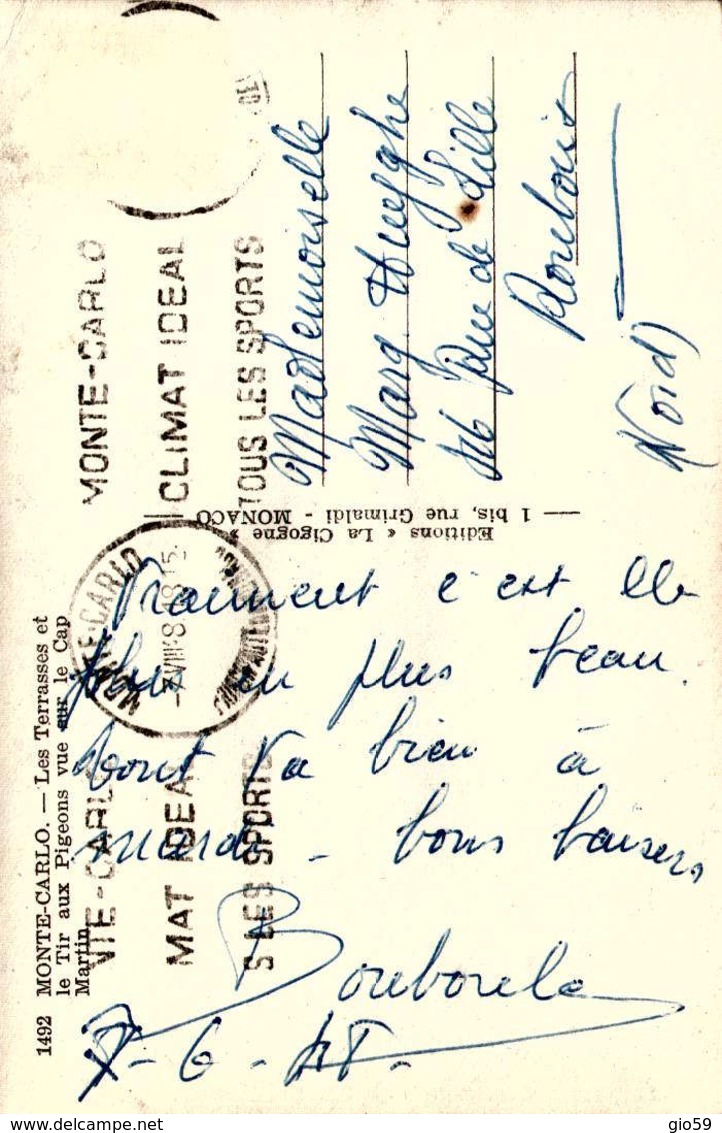 1492 MONTE-CARLO. — Les Terrasses et
le Tir aux Pigeons vue sur le Cap
Martin
MONTE-CARLO
CLIMAT IDEAL
TOUS LES SPORTS
MONTE-CARLO
NTE-CARLO
MAT IDEAL
S LES SPORTS
Editions « La Cigogne »
— 1 bis, rue Grimaldi - MONACO —
Mademoiselle
Marg.
Rue de Lille
Roubaix
Nord)
Vraiment c'est de
plus en plus beau.
tout va bien à
bons baisers
7-6-48-
gio59